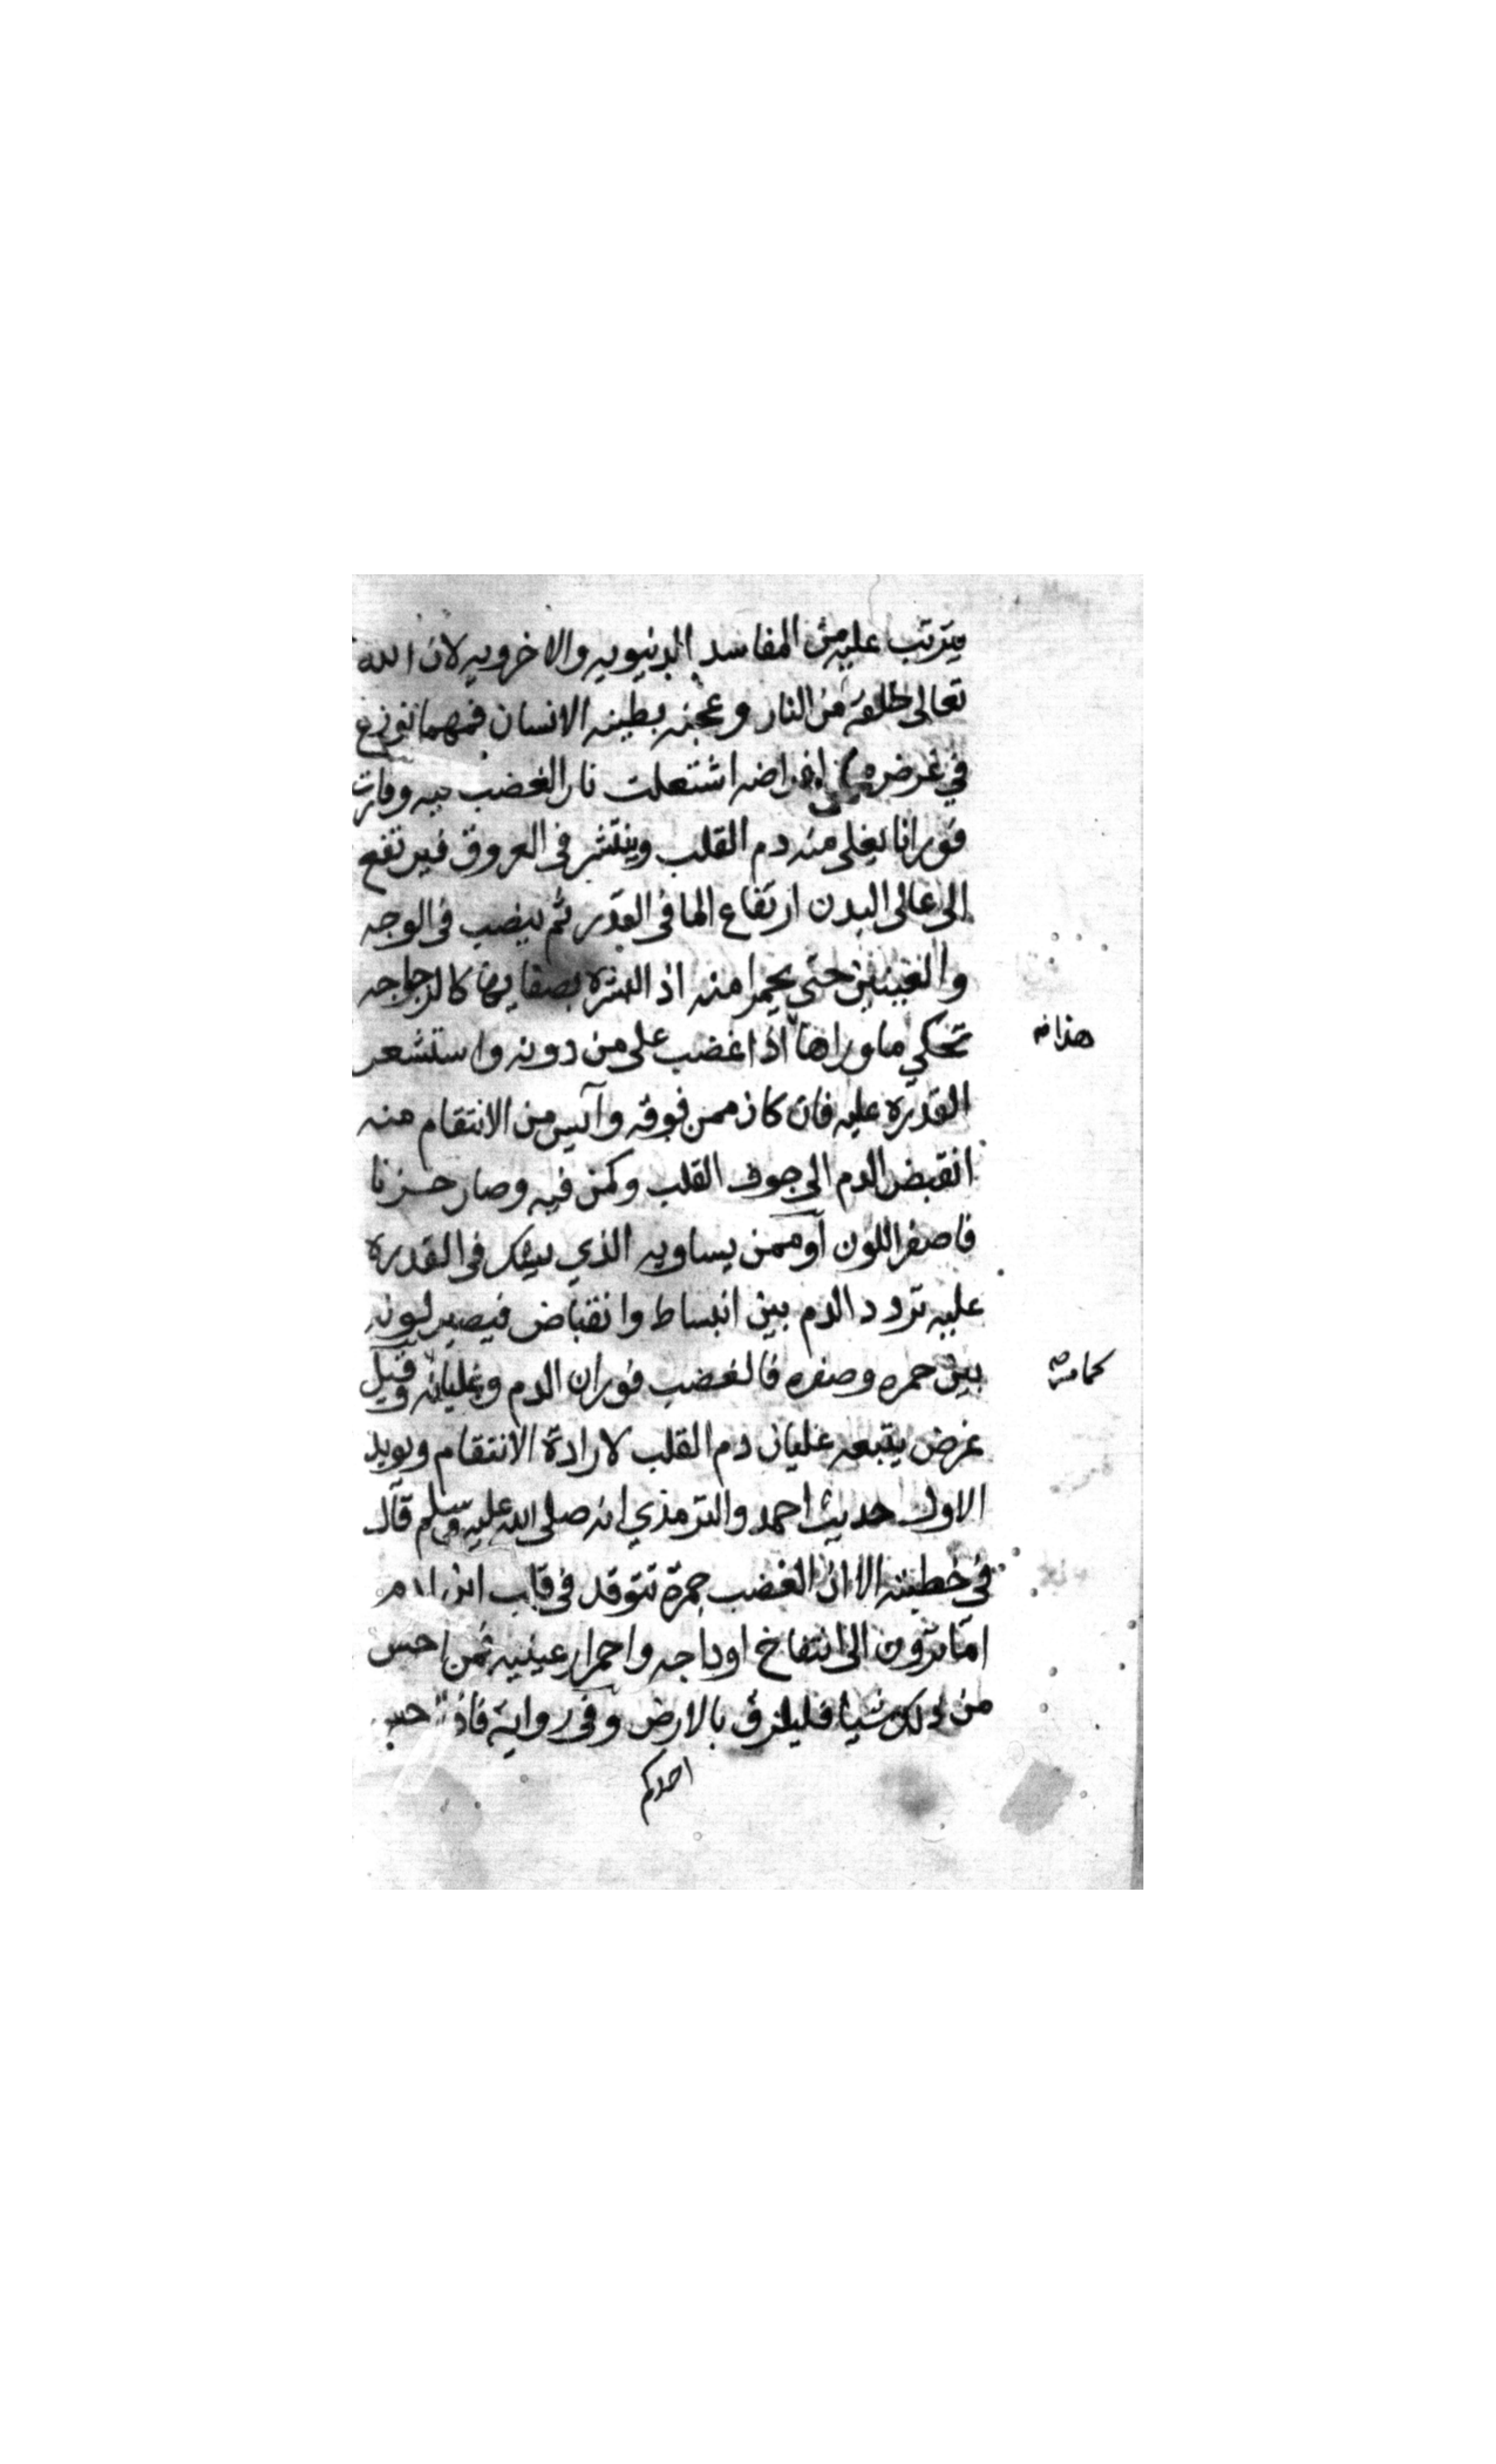 يترتب عليه من المفاسد الدنيويه والاخرويه لان الله
تعالى خلقه من النار وعجنه بطينه الانسان فمهما نوزع
في غرض من اغراضه اشتعلت نار الغضب فيه وفارت
فورانا يغلي منه دم القلب وينتشر في العروق فيرتفع
الى عالى البدن ارتفاع الما في القدر ثم ينصب في الوجه
والعينين حتى يحمرا منه اذ البشرة بصفايها كالزجاجه
هذا
تحكي ما وراها اذا غضب على من دونه واستشعر
القدرة عليه فان كان ممن فوقه وآيس من الانتقام منه
انقبض الدم الى جوف القلب وكمن فيه وصار حزنا
فاصفر اللون او ممن يساويه الذي يشك في القدرة
عليه تردد الدم بين انبساط وانقباض فيصير لونه
بين حمره وصفره فالغضب فوران الدم وغليانه وقيل
عرض يتبعه غليان دم القلب لارادة الانتقام ويويد
الاول حديث احمد والترمذي انه صلى الله عليه وسلم قال
في خطبته الا ان الغضب جمرة تتوقد في قلب ابن ادم
اما ترون الى انتفاخ اوداجه واحمرار عينيه فمن احس
من ذلك شيا فليلزق بالارض وفي رواية فاذا احس
احدكم